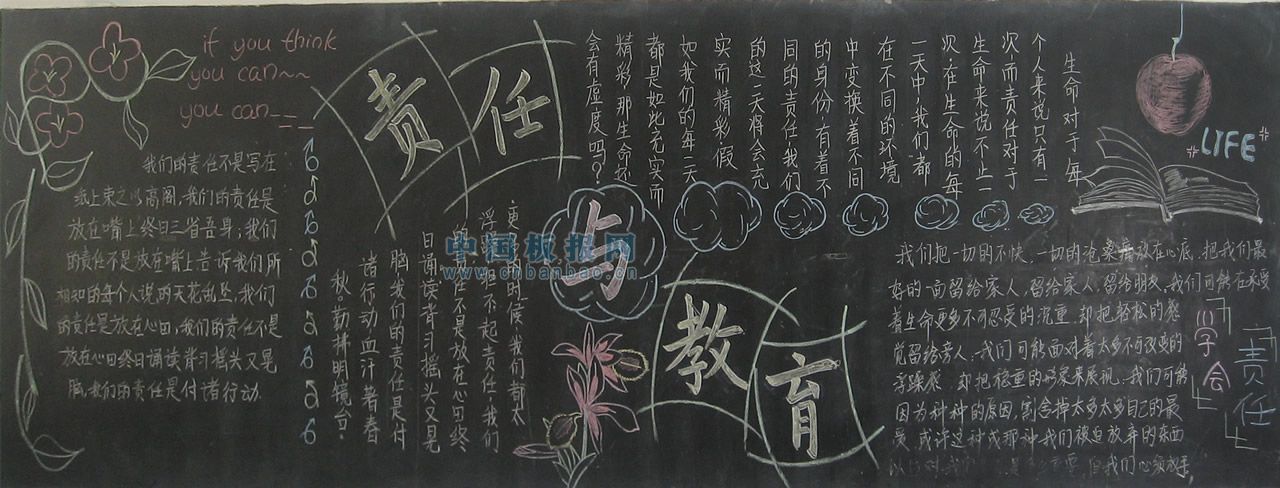 if you think
you can~~
you can
我们的责任不是写在
纸上束之以高阁,我们的责任是
放在嘴上终日三省吾身;我们
的责任不是放在嘴上告诉我们所
相知的每个人说的天花乱坠,我们
的责任是放在心田,我们的责任不是
放在心田终日诵读背习摇头又晃
脑,我们的责任是付诸行动
责任
与
教育
中国板报网
www.cnbanbao.cn
更 的时候我们都太
浮 担不起责任,我们
的 任不是放在心田终
日诵读背习摇头又晃
脑,我们的责任是付
诸行动血汗著春
秋,勤拂明镜台。
生命对于每
个人来说只有一
次,而责任对于
生命来说不止一
次,在生命的每
一天中,我们都
在不同的环境
中变换着不同
的身份,有着不
同的责任,我们
的这一天将会充
实而精彩,假
如我们的每一天
都是如此充实而
精彩,那生命还
会有虚度吗?
LIFE
我们把一切的不快,一切的沧桑 放在心底,把我们最
好的一面留给家人,留给家人,留给朋友,我们可能在承受
着生命更多不可忍受的沉重,却把轻松的感
觉留给旁人,我们可能面对着太多不可改变的
浮躁感,却把稳重的形象来展现,我们可能
因为种种的原因,割舍掉太多太多自己的最
爱,或许这种或那种我们被迫放弃的东西
以后对我们 重要,但我们心须放手,
学会
责任